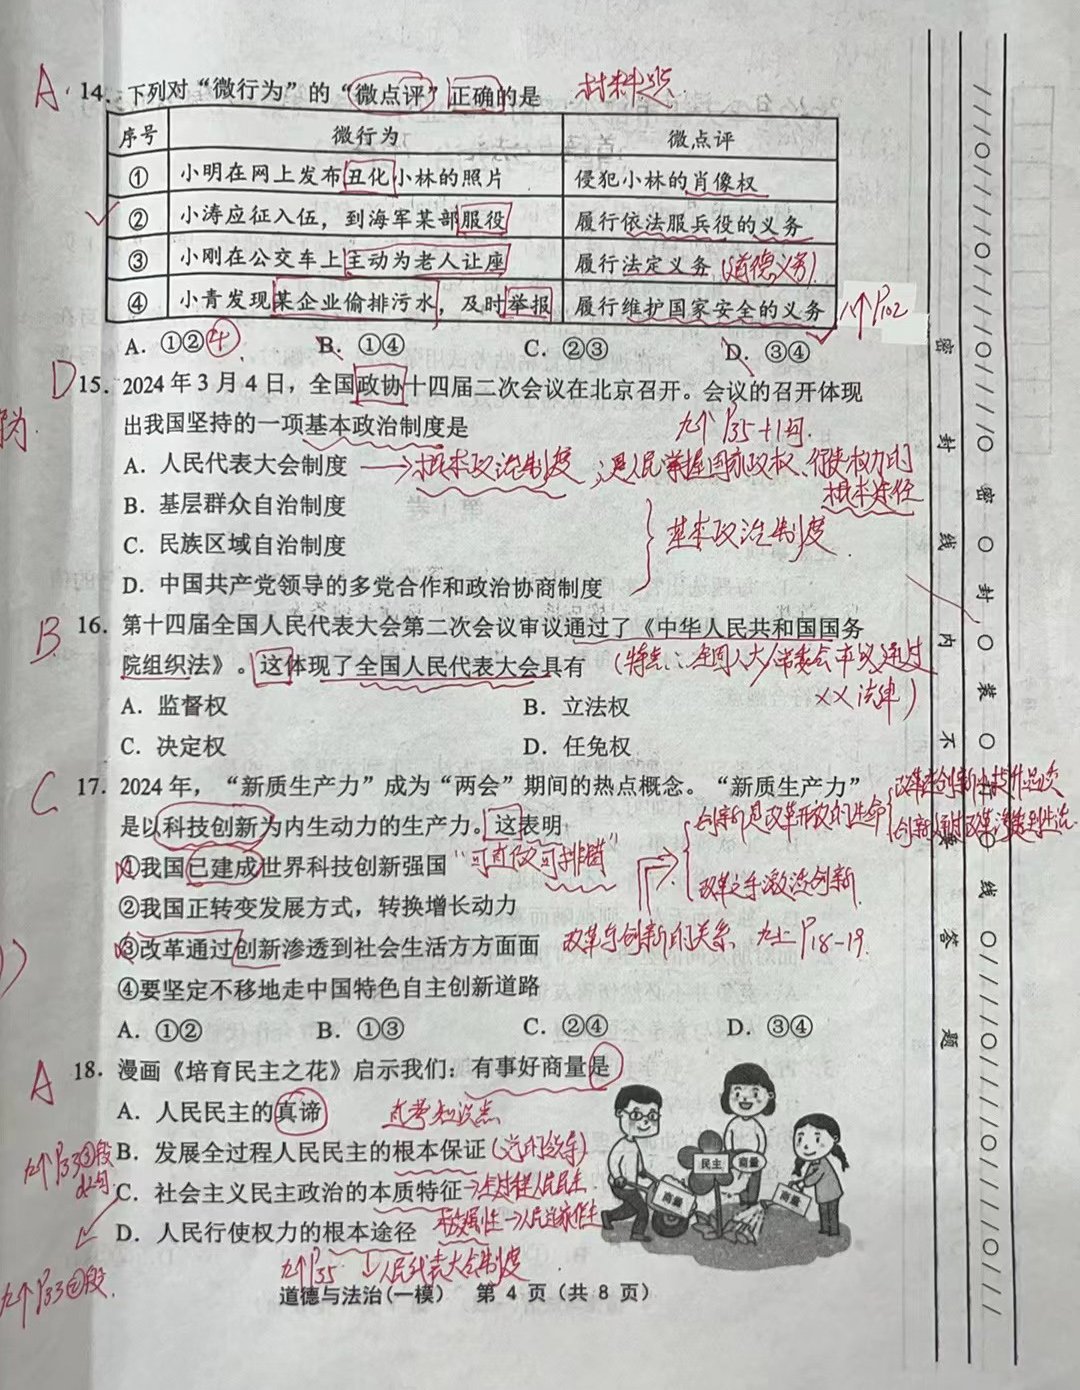 A. 14. 下列对“微行为”的“微点评”正确的是 材料题
序号 微行为 微点评
① 小明在网上发布丑化小林的照片 侵犯小林的肖像权
② 小涛应征入伍，到海军某部服役 履行依法服兵役的义务
③ 小刚在公交车上主动为老人让座 履行法定义务 (道德义务).
④ 小青发现某企业偷排污水，及时举报 履行维护国家安全的义务 八下P102
A. ①②④ B. ①④ C. ②③ D. ③④
D 15. 2024年3月4日，全国政协十四届二次会议在北京召开。会议的召开体现
出我国坚持的一项基本政治制度是 九下P35+1问.
A. 人民代表大会制度 →根本政治制度；是人民掌握国家政权、行使权力的
根本途径
B. 基层群众自治制度
C. 民族区域自治制度 基本政治制度
D. 中国共产党领导的多党合作和政治协商制度
B 16. 第十四届全国人民代表大会第二次会议审议通过了《中华人民共和国国务
院组织法》。这体现了全国人民代表大会具有 (特点：全国人大/常委会审议通过
××法律)
A. 监督权 B. 立法权
C. 决定权 D. 任免权
C 17. 2024年，“新质生产力”成为“两会”期间的热点概念。“新质生产力”
是以科技创新为内生动力的生产力。这表明 创新是改革开放的生命
①我国已建成世界科技创新强国 “可直仅可排错
②我国正转变发展方式，转换增长动力 改革之手激活创新
③改革通过创新渗透到社会生活方方面面 改革与创新的关系 九上P18-19.
④要坚定不移地走中国特色自主创新道路
A. ①② B. ①③ C. ②④ D. ③④
A 18. 漫画《培育民主之花》启示我们：有事好商量是
A. 人民民主的真谛 直考知识点
B. 发展全过程人民民主的根本保证(党的领导)
C. 社会主义民主政治的本质特征→全过程人民民主
D. 人民行使权力的根本途径
九上P35 ↓人民代表大会制度
九上P33②段.
民主
商量
商量
商量
道德与法治(一模) 第 4 页(共 8 页)
密 封 线 内 不 答 题
密 封 装 线